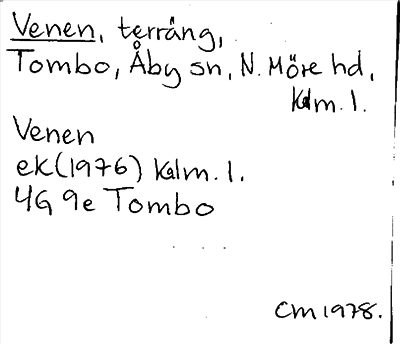 Venen, terräng,
Tombo, Åby sn, N. Möre hd,
Kalm. l.
Venen
ek (1976) Kalm. l.
4G 9e Tombo
CM 1978.